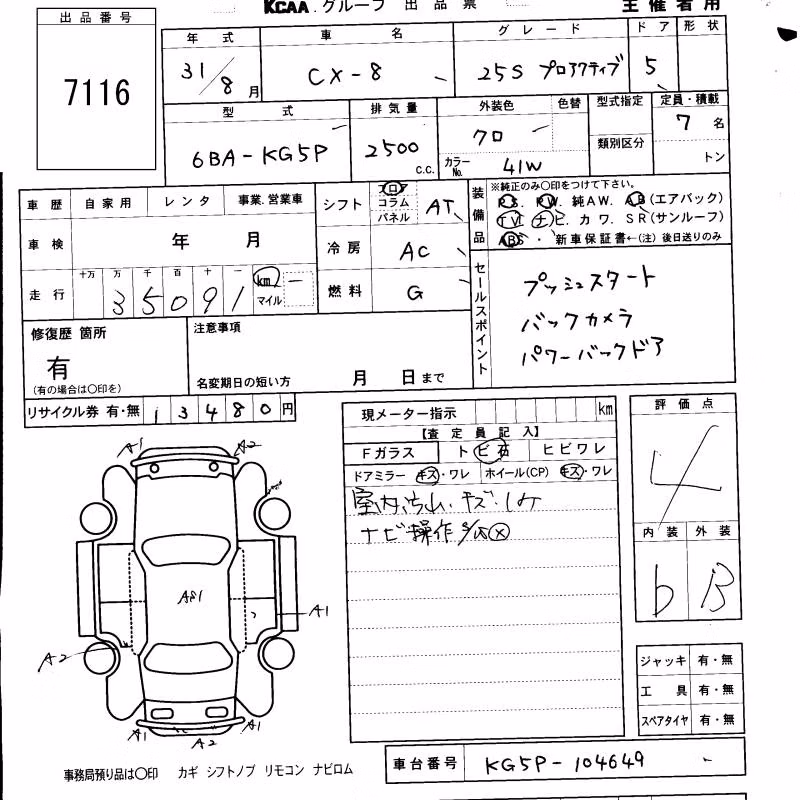 KCAA.グループ 出品票
主催者用
出品番号
7116
年式 車名 グレード ドア 形状
31/8月 CX-8 25S プロアクティブ 5
型式 排気量 外装色 色替 型式指定 定員・積載
6BA-KG5P 2500 c.c. クロ 7名
カラーNo. 41W 類別区分 トン
車歴 自家用 レンタ 事業.営業車
シフト フロア コラム パネル AT
装備品 ※純正のみ○印をつけて下さい。
P.S. P.W. 純AW. A.B(エアバック)
T.V ナビ. カワ. SR(サンルーフ)
ABS・ 新車保証書←(注)後日送りのみ
車検 年 月
冷房 AC
走行 十万 万 千 百 十 一
35091 km マイル
燃料 G
セールスポイント
プッシュスタート
バックカメラ
パワーバックドア
修復歴 箇所
有
(有の場合は○印を)
注意事項
名変期日の短い方 月 日まで
リサイクル券 有・無 13480円
現メーター指示 km
【査定員記入】
Fガラス トビ石 ヒビワレ
ドアミラー キズ・ワレ ホイール(CP) キズ・ワレ
ナビ操作
評価点
4
内装 外装
b B
A1 A2
A81
A1
A2
A1 A2 A1
ジャッキ 有・無
工具 有・無
スペアタイヤ 有・無
事務局預り品は○印 カギ シフトノブ リモコン ナビロム
車台番号 KG5P-104649